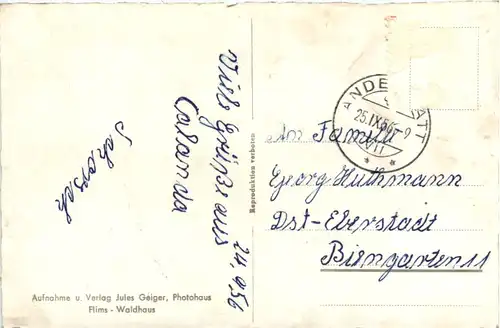 24.9.56
Viele Grüsse aus
Calanda
Schorsch
Aufnahme u. Verlag Jules Geiger, Photohaus
Flims - Waldhaus
Reproduktion verboten
ANDERMATT
25.IX.56
An Familie
Georg Huthmann
Dst-Eberstadt
Biengarten 11